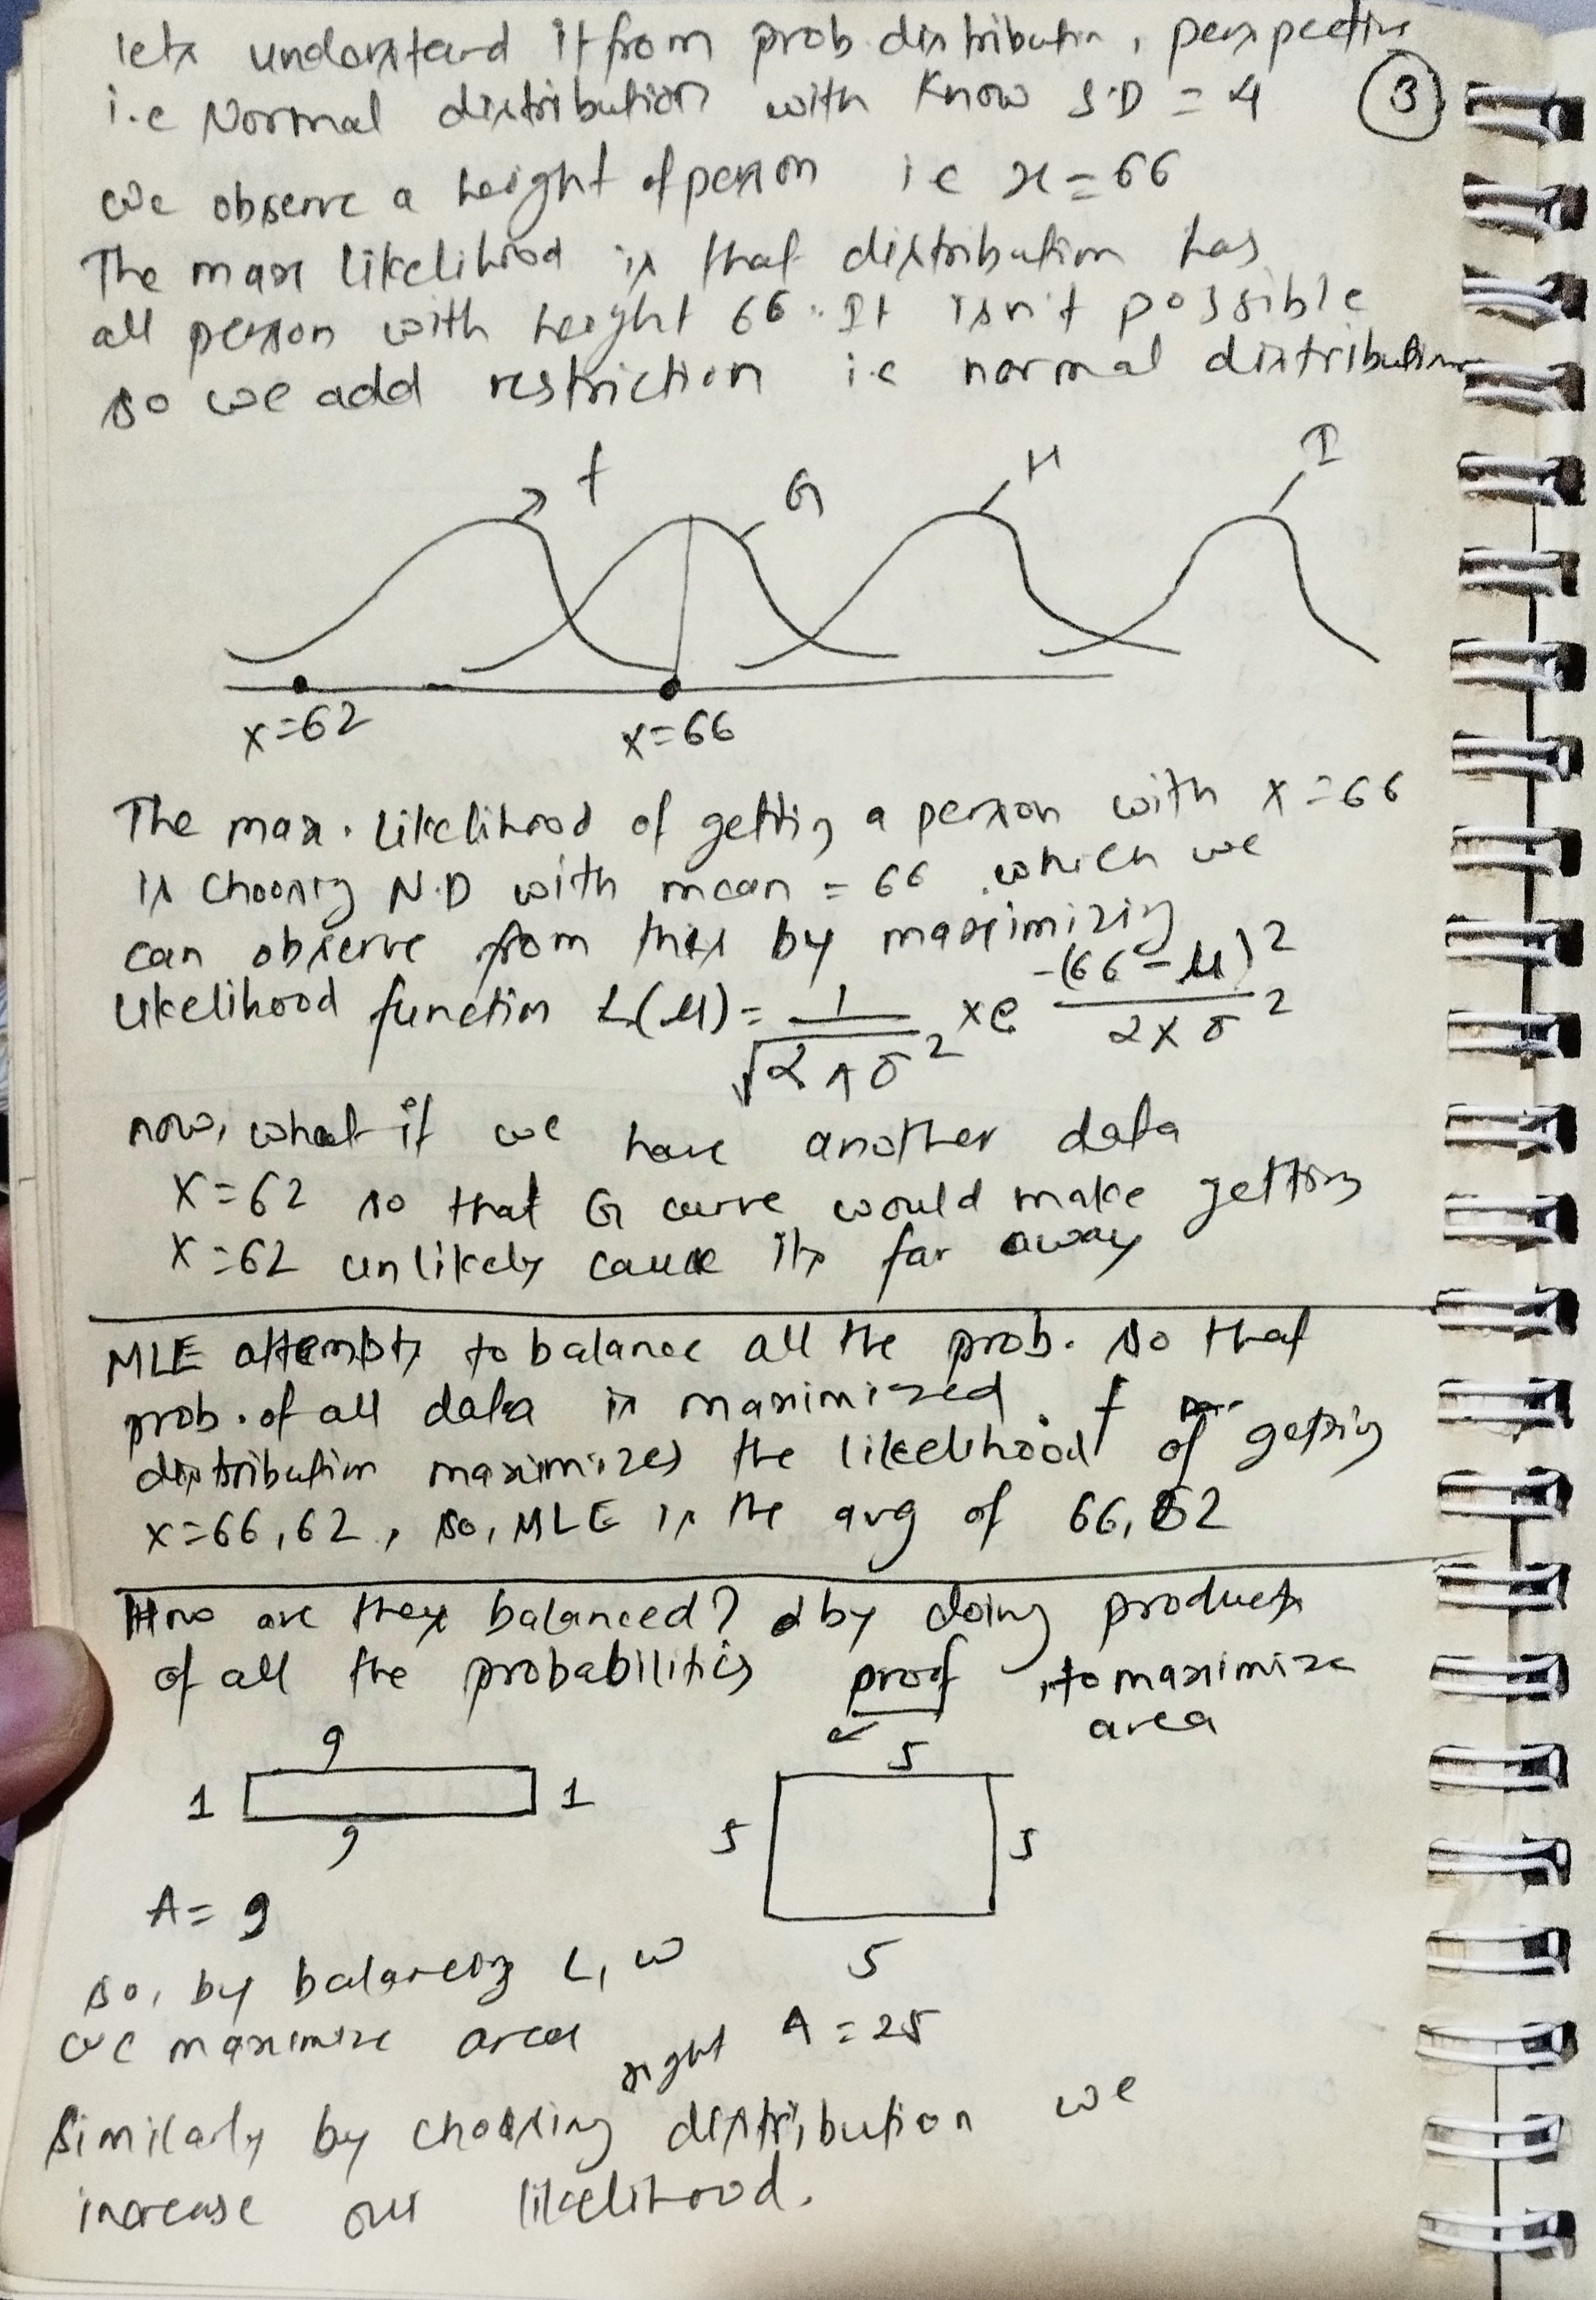 lets understand it from prob. distributn, perspective
i.e Normal distribution with Know S.D = 4
3
we observe a height of person i.e x = 66
The max likelihood is that distribution has
all person with height 66. It isn't possible
so we add restriction i.e normal distribution
f G H I
x=62 x=66
The max. likelihood of getting a person with x=66
is choosing N.D with mean = 66 which we
can observe from this by maximizing
likelihood function L(μ) = 1/√2πσ² × e -(66-μ)²/2×σ²
now, what if we have another data
x=62 so that G curve would make getting
x=62 unlikely cause its far away
MLE attempts to balance all the prob. so that
prob. of all data is maximized. f
distribution maximizes the likelihood of getting
x=66,62, so, MLE is the avg of 66, 62
How are they balanced? by doing products
of all the probabilities proof , to maximize
area
9 5
1 1 5 5
9
A= 9
5
so, by balancing L, w
we maximize area A = 25
right
Similarly by choosing distribution we
increase our likelihood.